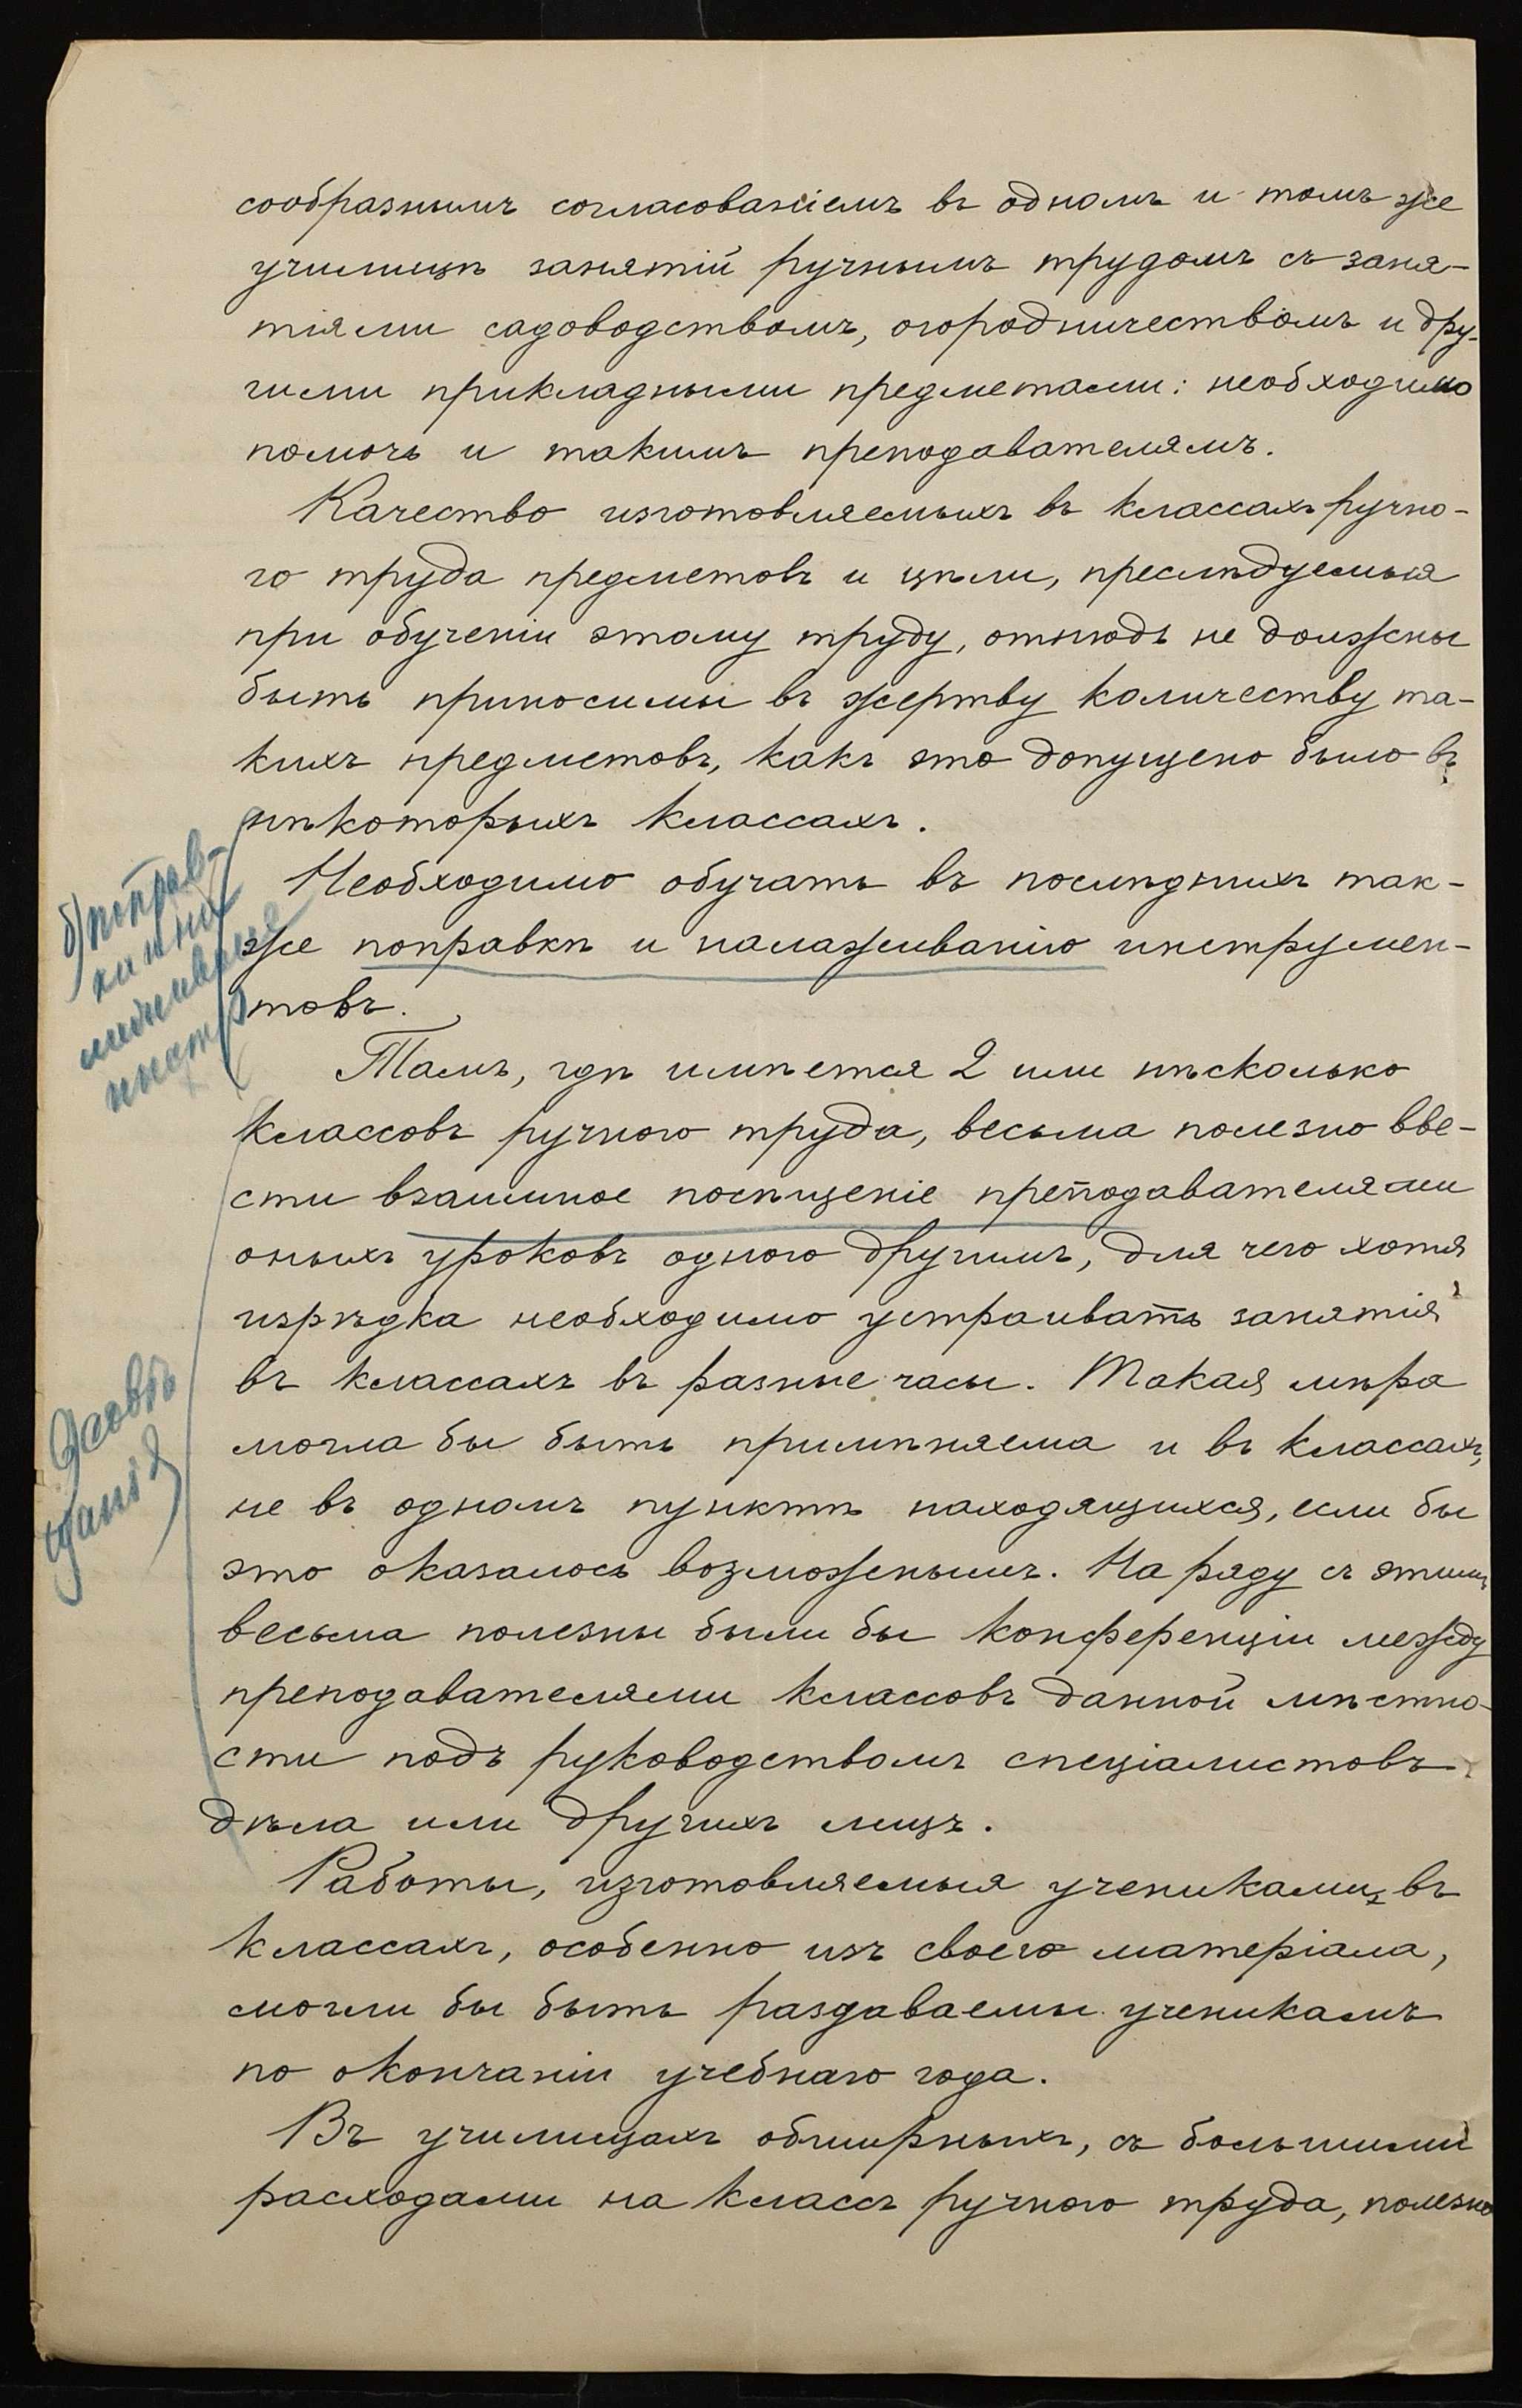 сообразнымъ согласованіемъ въ одномъ и томъ же
училищѣ занятій ручнымъ трудомъ съ заня-
тіями садоводствомъ, огородничествомъ и дру-
гими прикладными предметами: необходимо
помочь и такимъ преподавателямъ.
Качество изготовляемыхъ въ классахъ ручно-
го труда предметовъ и цѣли, преслѣдуемыя
при обученіи этому труду, отнюдь не должны
быть приносимы въ жертву количеству та-
кихъ предметовъ, какъ это допущено было въ
нѣкоторыхъ классахъ.
Необходимо обучать въ послѣднихъ так-
же поправкѣ и налаживанію инструмен-
товъ.
Тамъ, гдѣ имѣется 2 или нѣсколько
классовъ ручного труда, весьма полезно вве-
сти взаимное посѣщеніе преподавателями
оныхъ уроковъ одного другимъ, для чего хотя
изрѣдка необходимо устраивать занятія
въ классахъ въ разные часы. Такая мѣра
могла бы быть примѣняема и въ классахъ,
не въ одномъ пунктѣ находящихся, если бы
это оказалось возможнымъ. На ряду съ этимъ
весьма полезны были бы конференціи между
преподавателями классовъ данной мѣстно-
сти подъ руководствомъ спеціалистовъ
дѣла или другихъ лицъ.
Работы, изготовляемыя учениками въ
классахъ, особенно изъ своего матеріала,
могли бы быть раздаваемы ученикамъ
по окончаніи учебнаго года.
Въ училищахъ обширныхъ, съ большими
расходами на классъ ручного труда, полезно
б) поправ-
инстр